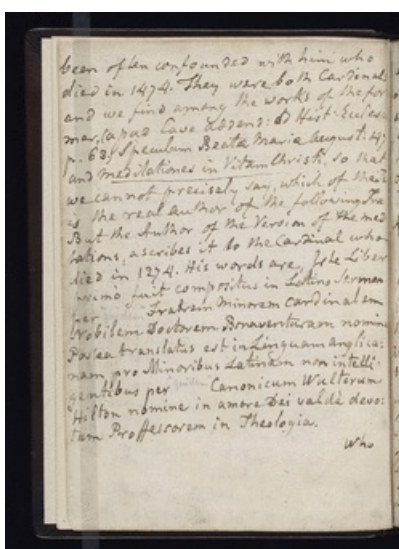 been often confounded with him who
died in 1474. They were both Cardinals
and we find among the works of the for
mer, (apud Cave addend: ad Hist: Eccles:
p. 63.) Speculum Beatæ Mariæ August: 14
and meditationes in Vitam Christi, so that
we cannot precisely say, which of them
is the real author of the following Tra
But the Author of the Version of the med
tations, ascribes it to the Cardinal who
died in 1274. His words are, Iste Liber
primo fuit compositus in Latino Sermon
per Fratrem Minorem Cardinalem
Nobilem Doctorem Bonaventuram nomine
Postea translatus est in Linguam anglica:
nam pro Minoribus Latinam non intelli:
gentibus per Canonicum Walterum
Hilton nomine in amore Dei valdè devo:
tum Proffessorem in Theologia.
Who